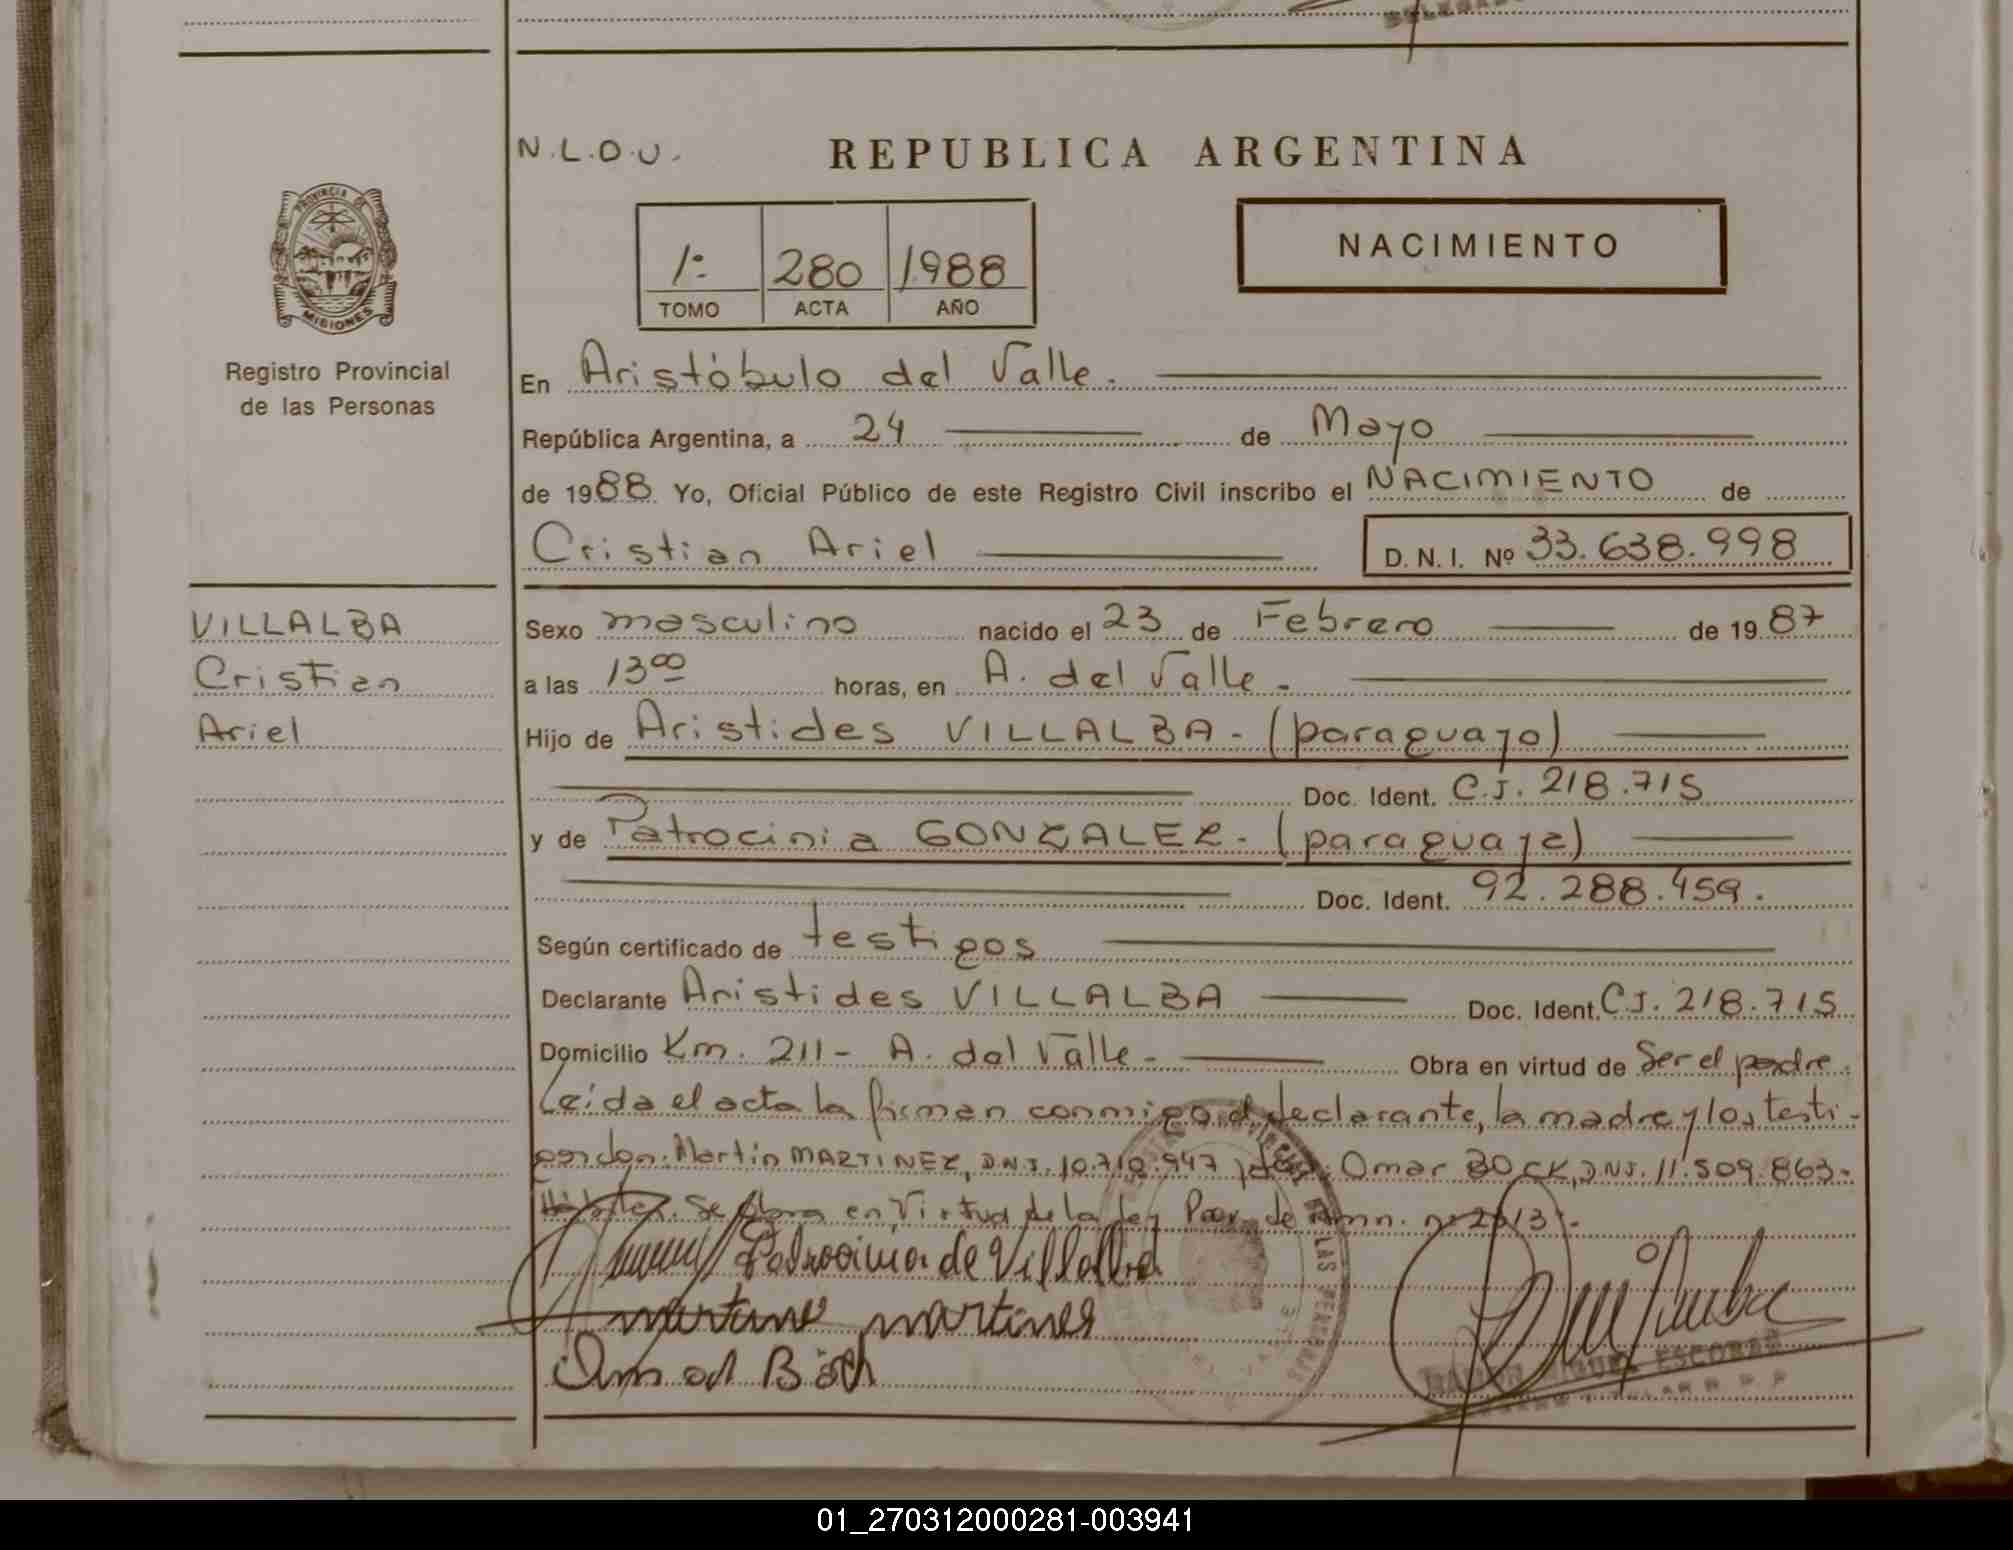 N.L.O.U.
REPUBLICA ARGENTINA
PROVINCIA DE
MISIONES
Registro Provincial
de las Personas
1º 280 1988
TOMO ACTA AÑO
NACIMIENTO
En Aristóbulo del Valle.
República Argentina, a 24 de Mayo
de 1988 Yo, Oficial Público de este Registro Civil inscribo el NACIMIENTO de
Cristian Ariel D. N. I. Nº 33.638.998
VILLALBA
Cristian
Ariel
Sexo masculino nacido el 23 de Febrero de 1987
a las 13⁰⁰ horas, en A. del Valle.
Hijo de Aristides VILLALBA - (paraguayo)
Doc. Ident. C.I. 218.715
y de Patrocinia GONZALEZ - (paraguaya)
Doc. Ident. 92.288.459.
Según certificado de testigos
Declarante Aristides VILLALBA Doc. Ident. C.I. 218.715
Domicilio Km. 211 - A. del Valle - Obra en virtud de Ser el padre.
Leída el acta la firman conmigo el declarante, la madre y los testi-
gos don. Martín MARTINEZ, DNI. 10.710.947 y don. Omar BOCK, DNI. 11.509.863.
Se obra en Virtud de la ley
Patrocinia de Villalba
martines
Böck
MIGUEL ESCOBAR
01_270312000281-003941